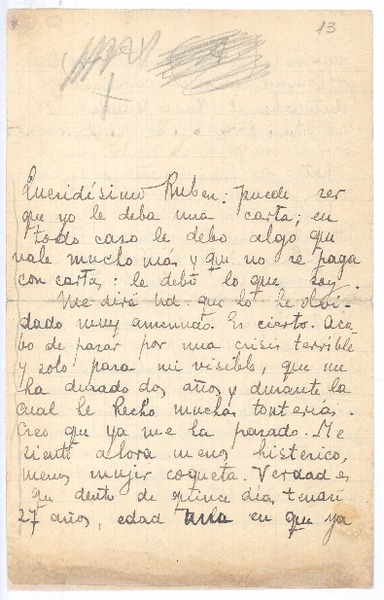 13
Queridísimo Ruben: puede ser
que yo le deba una carta; en
todo caso le debo algo que
vale mucho más y que no se paga
con cartas: le debo lo que soy.
Me dirá Ud. que lo he olvi-
dado muy amenudo. Es cierto. Aca-
bo de pasar por una crisis terrible
y solo para mi visible, que me
ha durado dos años y durante la
cual he hecho muchas tonterias.
Creo que ya me ha pasado. Me
siento ahora menos histerico,
menos mujer coqueta. Verdad es
que dentro de quince días tendré
27 años, edad en que ya